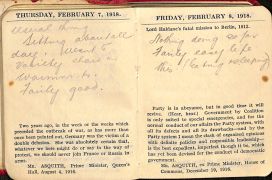 THURSDAY, FEBRUARY 7, 1918.
usual thing.
Sitting about all
day. Went to
Fairly good.
Two years ago, in the week or the weeks which
preceded the outbreak of war, no less more than
once been pointed out, Germany was the victim of a
double delusion. She was absolutely certain that,
whatever we lets might do or say in the way of
protest, we should never join France or Russia in
arms.
Mr. ASQUITH, Prime Minister, Queen's
Hall, August 4, 1916.
FRIDAY, FEBRUARY 8, 1918.
Lord Haldane's fatal mission to Berlin, 1912.
Nothing doing so far
Fairly easy life
this
Party is in abeyance, but in good time it will
revive. (Hear, hear.) Government by Coalition
is only suited to special emergencies, and for the
normal conduct of our affairs the Party system, with
all its defects and all its drawbacks—and by the
Party system I mean the clash of organised opinion
with definite policies and responsible leaders—
is the best expedient, imperfect though it be, which
has yet been devised for the conduct of democratic
government.
Mr. ASQUITH, ex Prime Minister, House of
Commons, December 19, 1916.